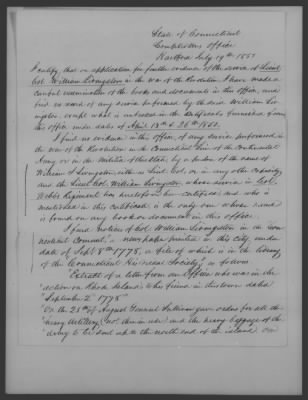 State of Connecticut
Comptrollers Office
Hartford July 19th 1850
I certify, that on application for further evidence of the service of Lieut
Col. William Livingston in the war of the Revolution I have made a
careful examination of the books and documents in this office, and
find no record of any service performed by the said William Liv-
ingston, except what is embraced in the certificate furnished from
this office under dates of April 19th & 26th 1850.
I find no evidence in this office, of any service performed in
the war of the Revolution in the Connecticut Line of the Continental
Army or in the Militia of the State, by a person of the name of
William Livingston, either as Lieut Col, or in any other capacity,
and the Lieut. Col. William Livingston, whose service in Col.
Webb's Regiment has heretofore been certified and who is
mentioned in this certificate, is the only one whose name
is found on any book or document in this office.
I find notices of Col. William Livingston in the Con-
necticut Courant, a newspaper printed in this City, under
date of Sept 8th 1778, a file of which is in the library
of the Connecticut Historical Society, as follows
"Extract of a letter from an Officer who was in the
"action on Rhode Island, to his friend in this town dated
"September 2 1778"
"On the 28th of August General Sullivan gave orders for all the
"heavy Artillery (not then in use) and the heavy baggage of the
"Army to be sent up to the north end of the island on